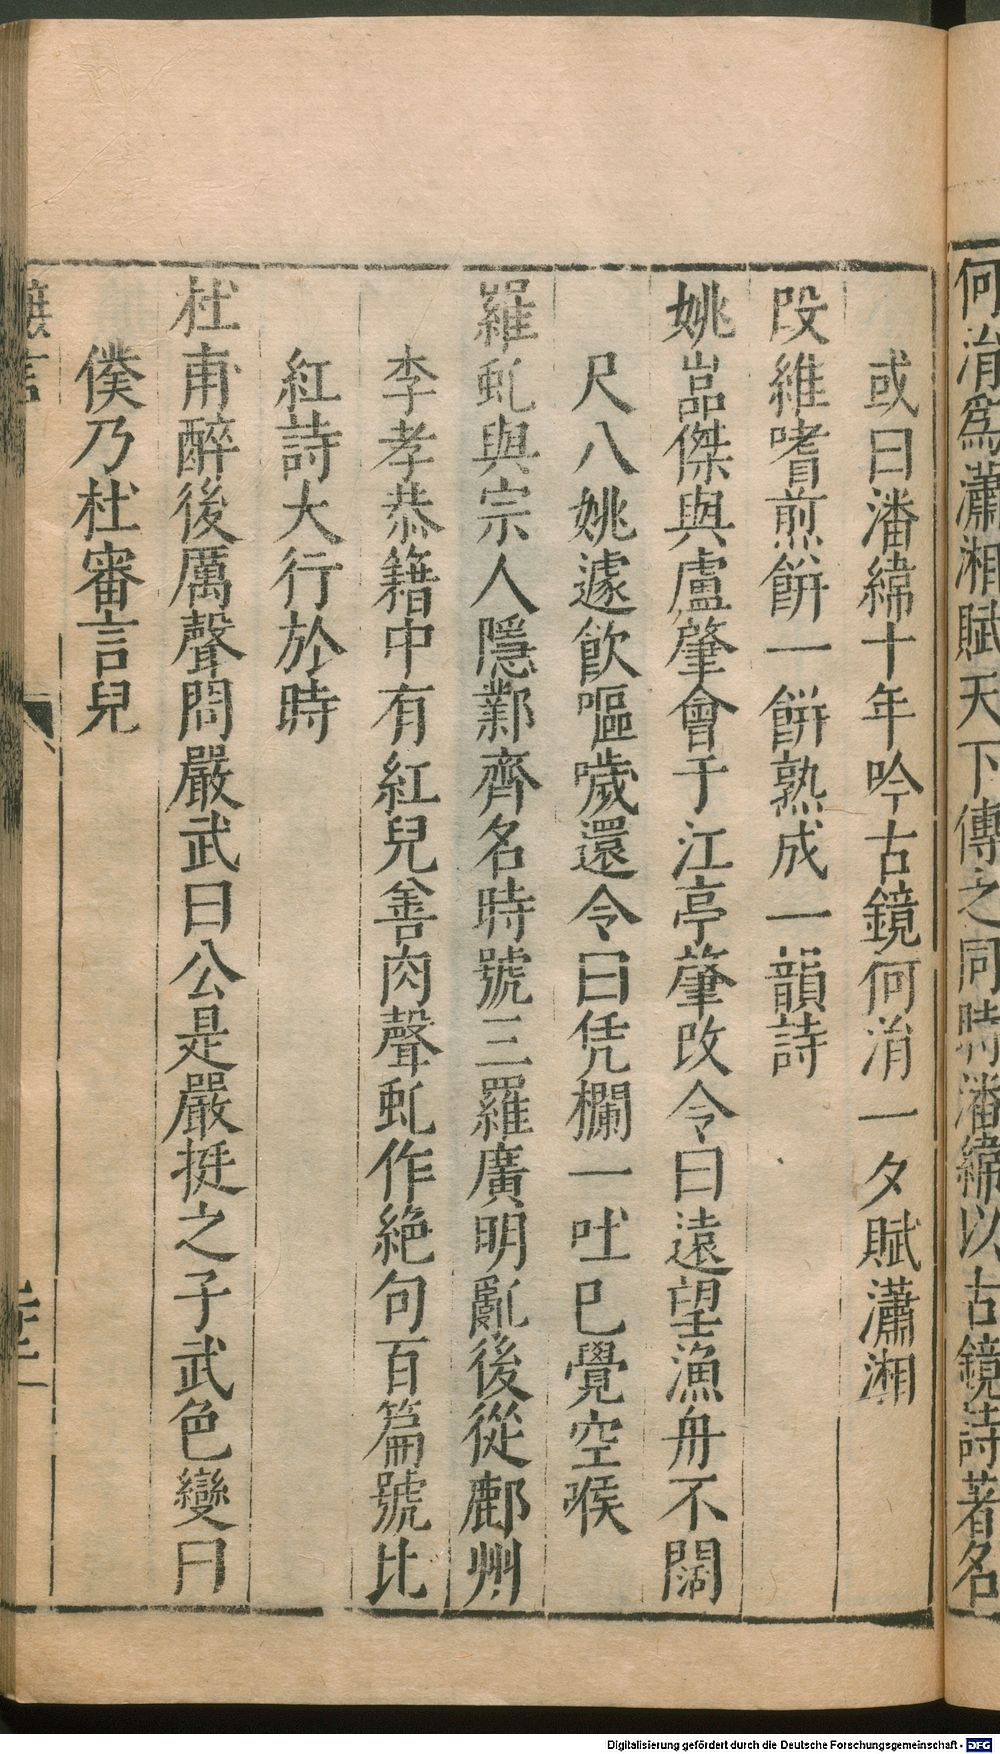 何涓爲瀟湘賦天下傳之同時潘緯以古鏡詩著名
或曰潘緯十年吟古鏡何涓一夕賦瀟湘
段維嗜煎餅一餅熟成一韻詩
姚嵓傑與盧肇會于江亭肇改令曰遠望漁舟不闊
尺八姚遽飲嘔噦還令曰凭欄一吐已覺空喉
羅虬與宗人隱鄴齊名時號三羅廣明亂後從鄜州
李孝恭籍中有紅兒善肉聲虬作絶句百篇號比
紅詩大行於時
杜甫醉後厲聲問嚴武曰公是嚴挺之子武色變曰
僕乃杜審言兒
Digitalisierung gefördert durch die Deutsche Forschungsgemeinschaft - DFG